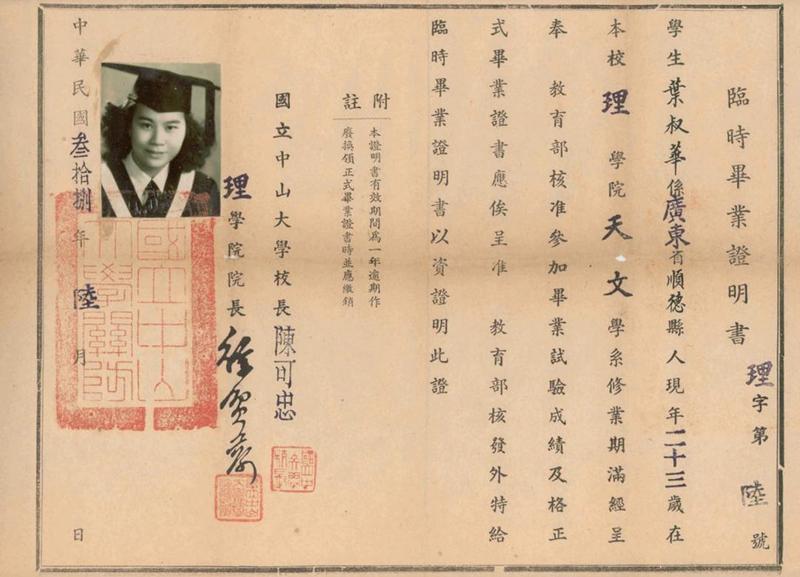 臨時畢業證明書
理字第陸號
學生葉叔華係廣東省順德縣人現年二十三歲在
本校理學院天文學系修業期滿經呈
奉教育部核准參加畢業試驗成績及格正
式畢業證書應俟呈准教育部核發外特給
臨時畢業證明書以資證明此證
附註
本證明書有效期間為一年逾期作
廢換領正式畢業證書時並應繳銷
國立中山大學校長陳可忠
理學院院長徐賢恭
中華民國叁拾捌年陸月日
國立中山大學關防